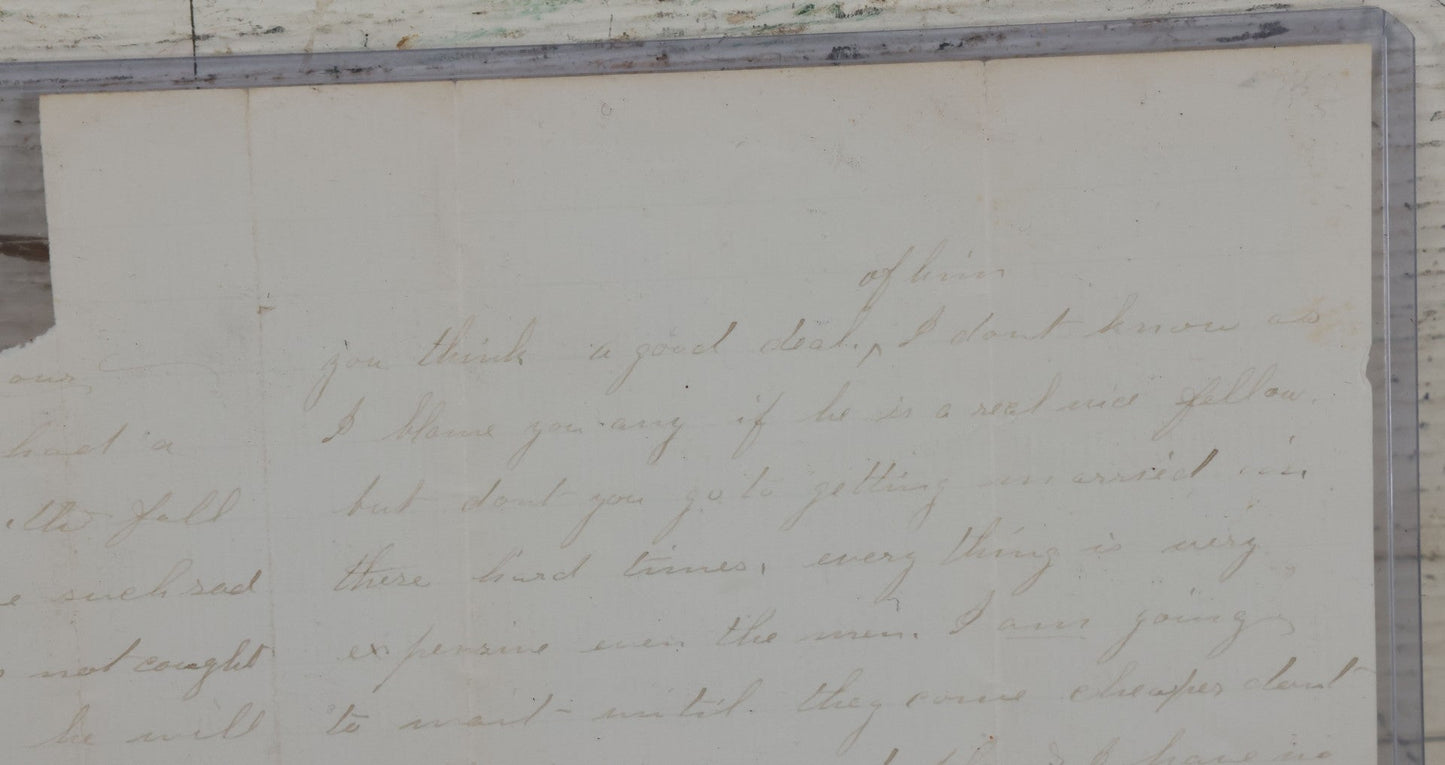 our
had a
the fall
such sad
not caught
he will
of him
you think a good deal. ^ I dont know as
I blame you any if he is a real nice fellow.
but dont you go to getting married in
these hard times. every thing is very
expensive even the men. I am going
to wait until they come cheaper dont
I have no